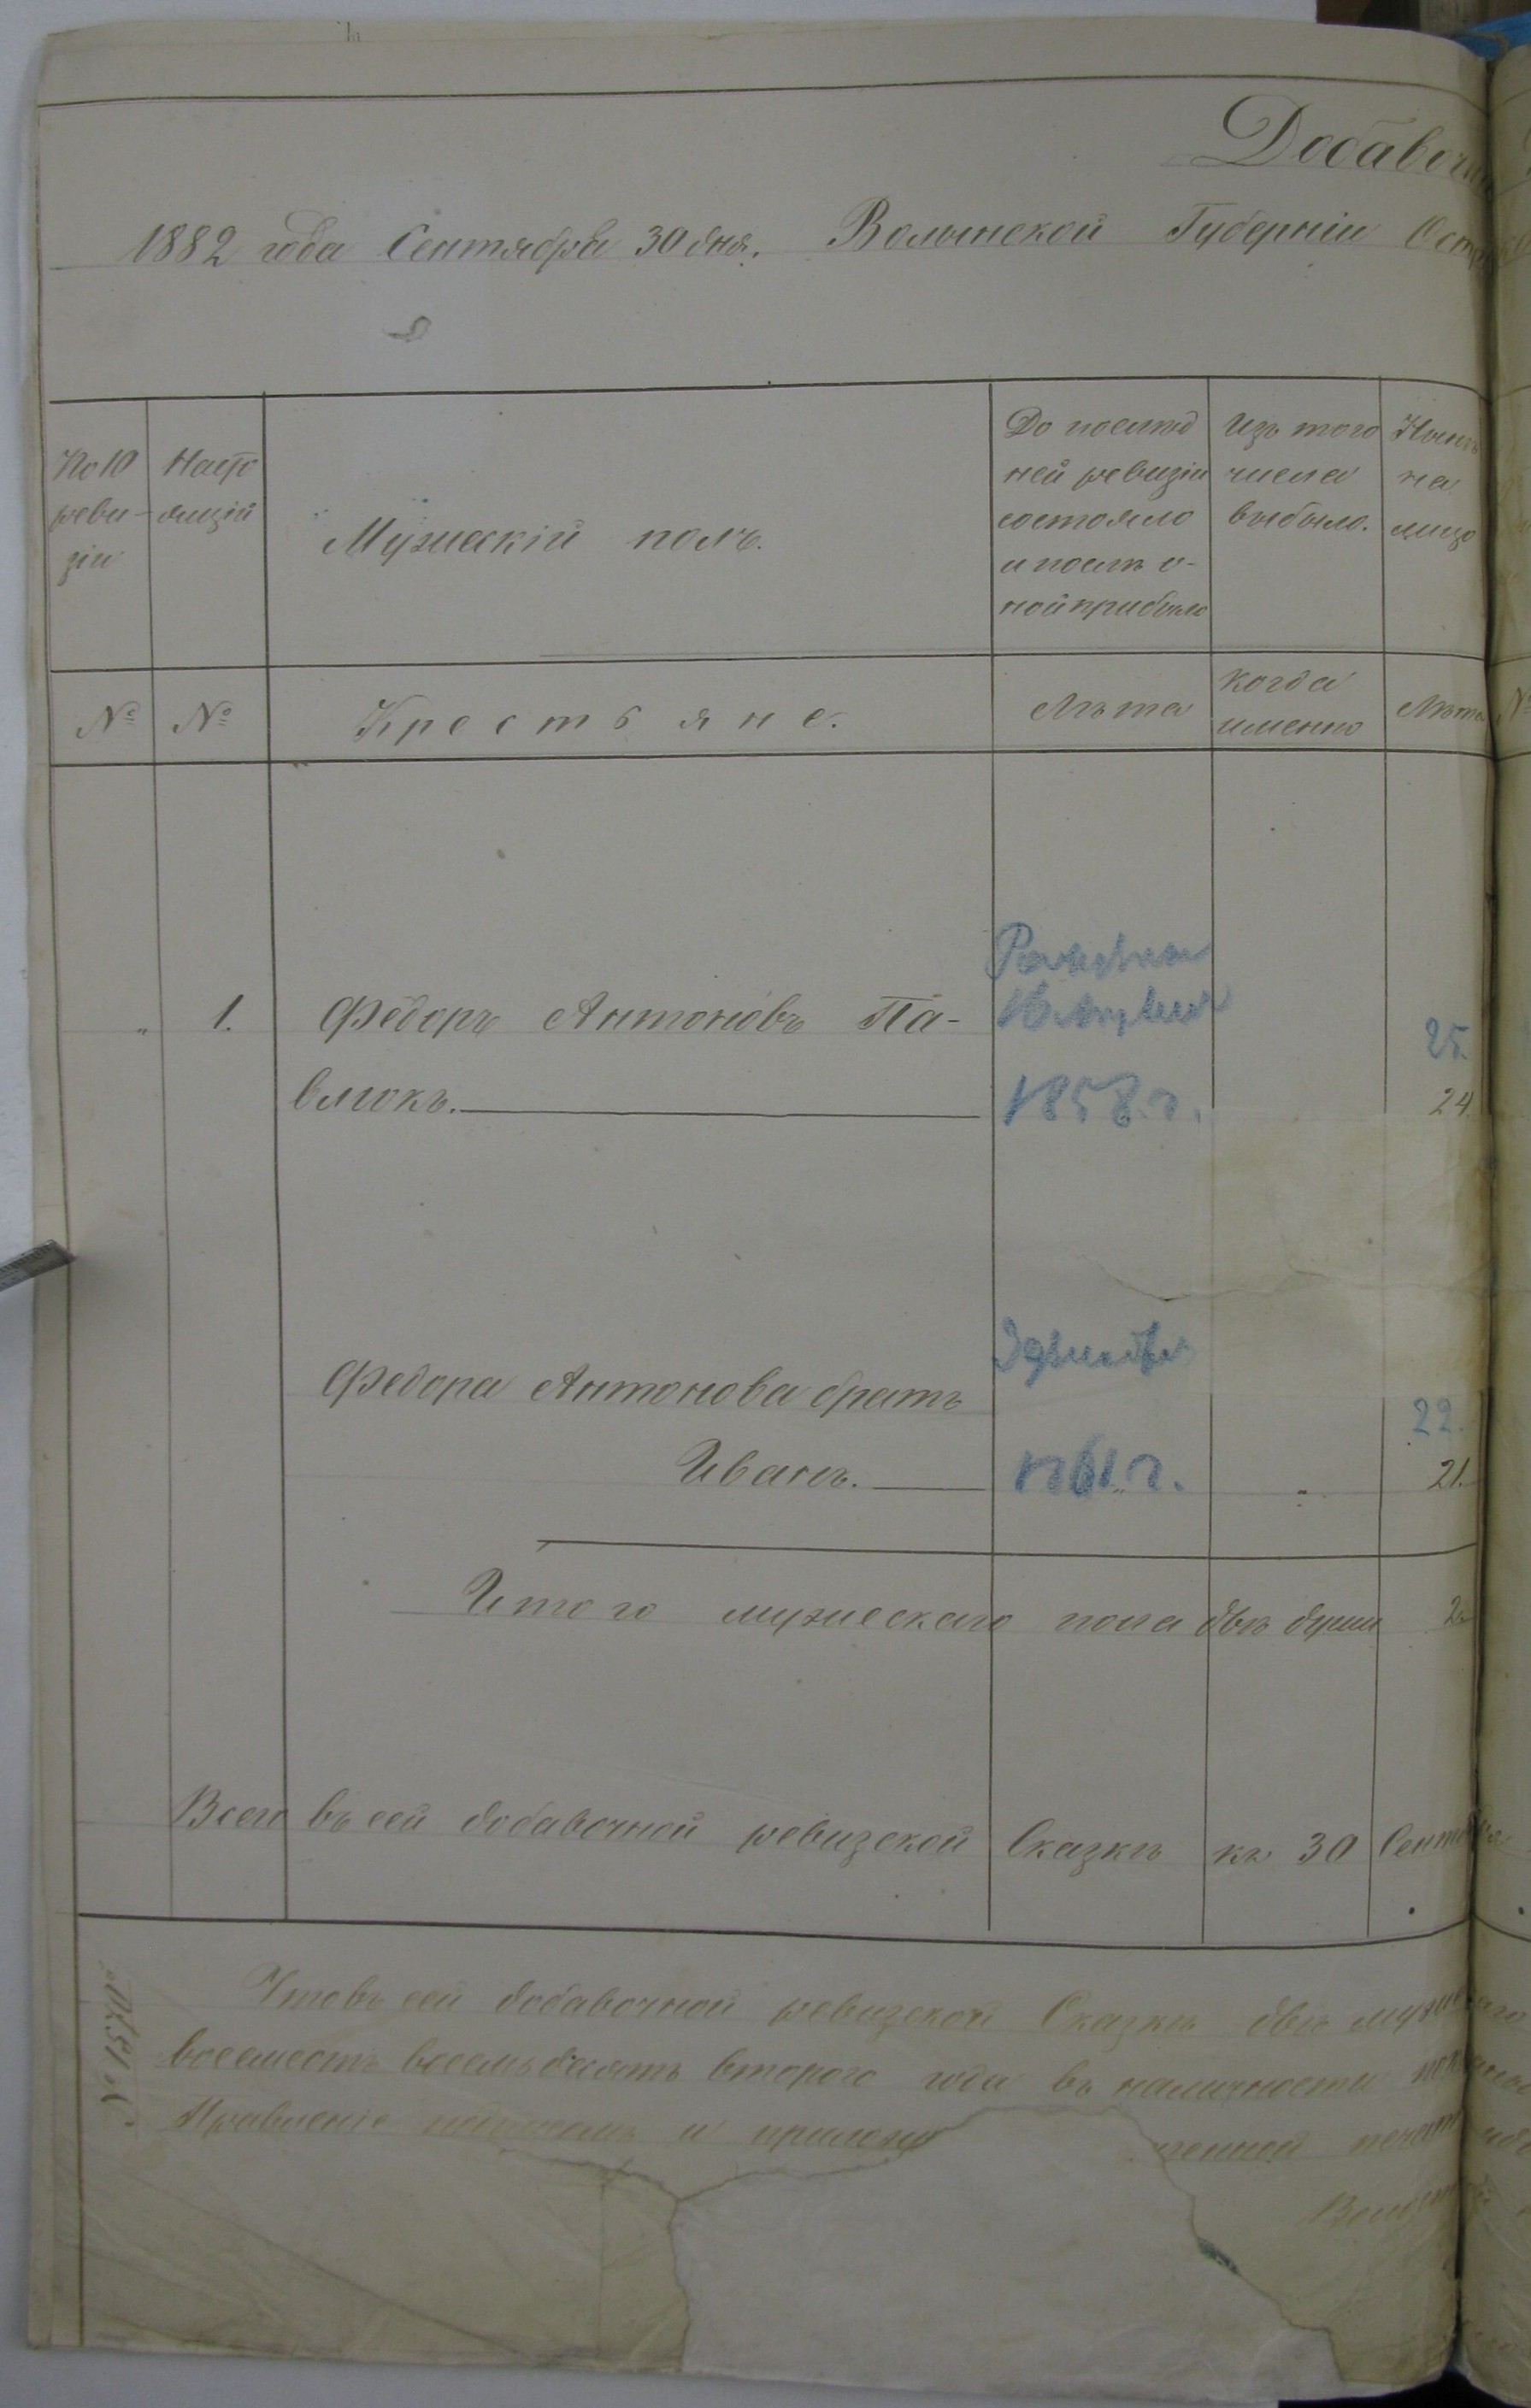 Добавочн
1882 года Сентября 30 дня. Волынской Губерніи Остр
No 10 реви-зіи
Насто ящій
Мужескій полъ.
До послѣд
ней ревизіи
состояло
и послѣ о-
ной прибыло
Изъ того
числа
выбыло.
Нынѣ
на
лицо
№
№
Крестьяне.
Лѣта
когда
именно
Лѣта
" 1. Ѳедоръ Антоновъ Па-
25.
влюкъ.
1858 г.
24.
Ѳедора Антонова братъ
22.
Иванъ.
1861 г. "
21.
Итого мужескаго пола двѣ души 2
Всего въ сей добавочной ревизской Сказкѣ къ 30 Сентября
Что въ сей добавочной ревизской Сказкѣ двѣ
восемьсотъ восемьдесятъ второго года въ наличности
Правленіе и приложе
печат
Волост